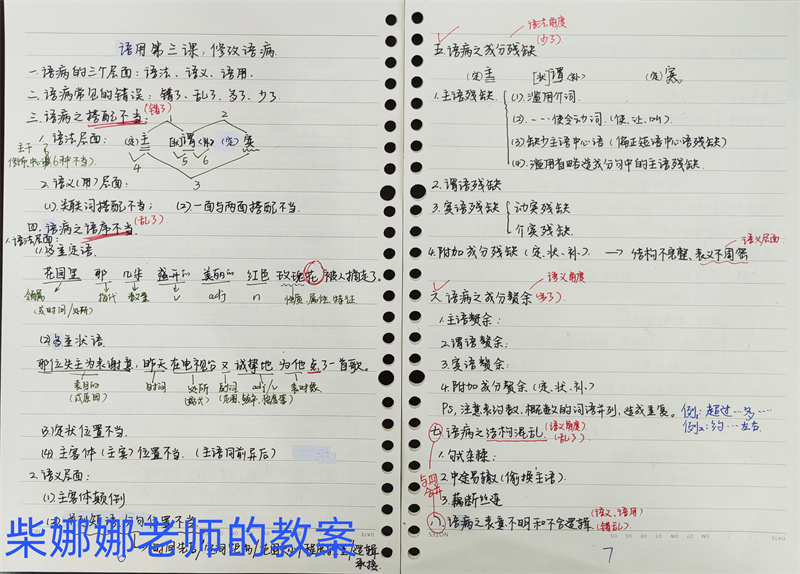 语用第三课:修改语病.
一.语病的三个层面:语法、语义、语用.
二.语病常见的错误:错了、乱了、多了、少了
三.语病之搭配不当:(错了)
1.语法层面:
(定)主 [状]谓<补> (定)宾
1 2 3 4 5 6
主干
2.语义(用)层面:
(1).关联词搭配不当; (2).一面与两面搭配不当.
四.语病之语序不当.(乱了)
1.语法层面:
(1)多重定语.
花园里 那 几朵 盛开的 美丽的 红色 玫瑰花 被人摘走了.
领属 指代 数量 v adj n 性质.属性.特征
(或时间/处所)
(2)多重状语
那位失主为表谢意,昨天在电视台又诚挚地为他点了一首歌.
表目的 时间 处所 时间 adj/v 表对象
(或原因)
(3)定状位置不当.
(4)主客体(主宾)位置不当.(主语同前异后)
2.语义层面:
(1)主客体颠倒
柴娜娜老师的教案
语法角度
五.语病之成分残缺 (少了)
(定)主 [状]谓<补> (定)宾
1.主语残缺
(1).滥用介词.
(2).……使令动词.(使、让、叫)
(3)缺少主语中心语(偏正短语中心语残缺)
(4).滥用省略造成分句中的主语残缺.
2.谓语残缺
3.宾语残缺
动宾残缺
介宾残缺
4.附加成分残缺(定、状、补.) → 结构不完整、表义不周密
语义层面
六.语病之成分赘余(多了).
语义角度
1.主语赘余:
2.谓语赘余:
3.宾语赘余:
4.附加成分赘余(定、状、补.)
Ps,注意表约数、概数的词语并列,造成重复.
例1:超过…多…
例2:约…左右
七.语病之结构混乱.(语义角度)(乱了)
1.句式杂糅:
2.中途易辙(偷换主语).
3.藕断丝连
与四合并
八.语病之表意不明和不合逻辑.(语义、语用)(错乱)
7